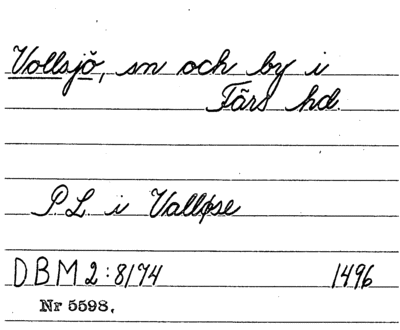 Vollsjö, sn och by i
Färs hd.
P L i Valløse
DBM 2:8194 1496
Nr 5598.